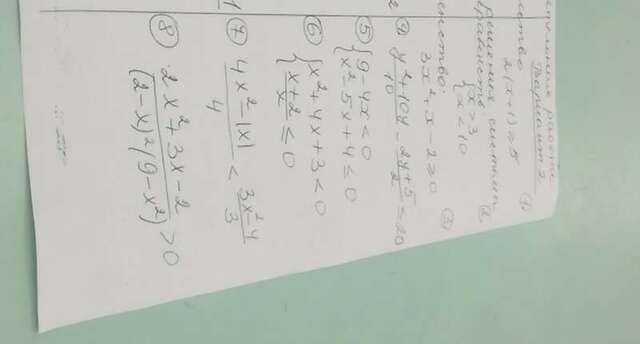 Вариант 2
① 2(x+1) ≥ 5
②
{ x > 3
{ x < 10
③ 3x² + x - 2 ≥ 0
④ (y² + 10y)/10 - (2y + 5)/2 ≤ 20
⑤ { 9 - 4x < 0
{ x² - 5x + 4 ≤ 0
⑥ { x² + 4x + 3 < 0
{ (x + 2)/x ≤ 0
⑦ (4x² - |x|)/4 < (3x² - 4)/3
⑧ (2x² + 3x - 2)/((2 - x)²(9 - x²)) > 0